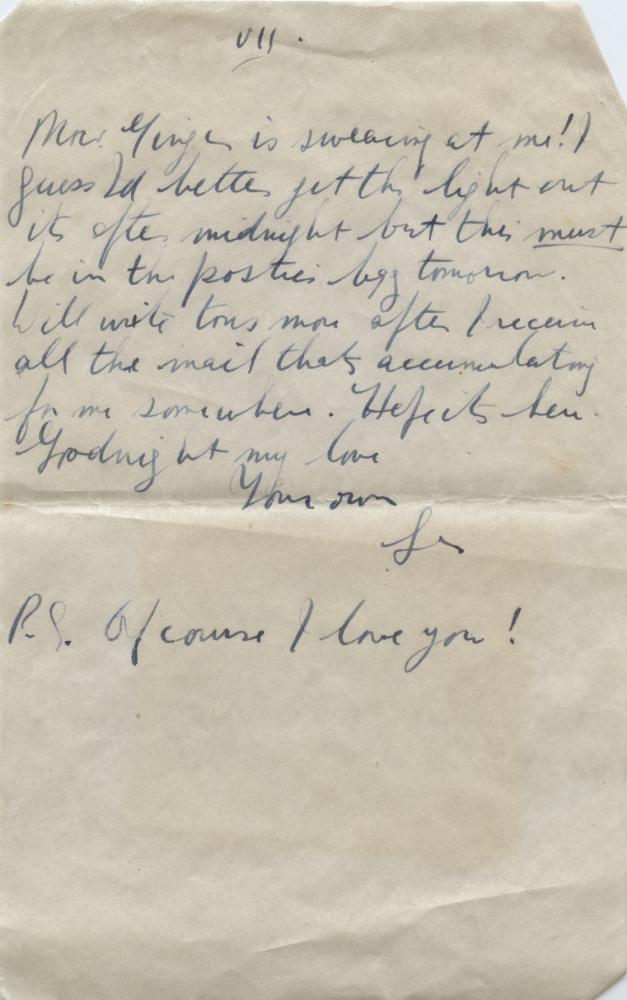 VII.
Now Ginger is swearing at me! I
guess Id better get the light out
its after midnight but this must
be in the posties bag tomorrow.
Will write tons more after I receive
all the mail thats accumulating
for me somewhere. Hope its here.
Goodnight my love
Your own
Les
P.S. Of course I love you!